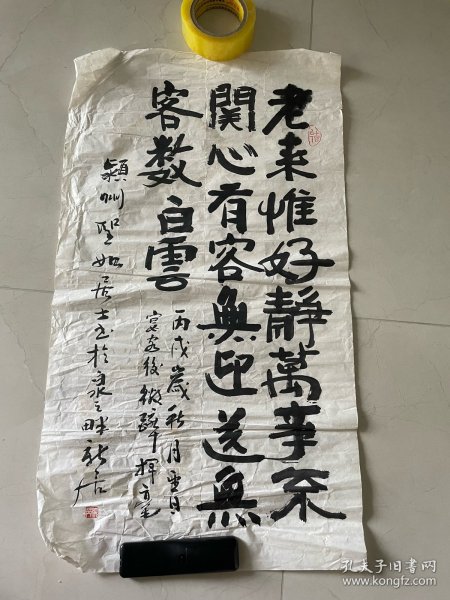 老来惟好静萬事不
関心有客無迎送無
客数白雲
丙戌歲秋月
宴客後微醉揮毫
潁州聖如居士书於泉之畔新居
孔夫子旧书网
www.kongfz.com